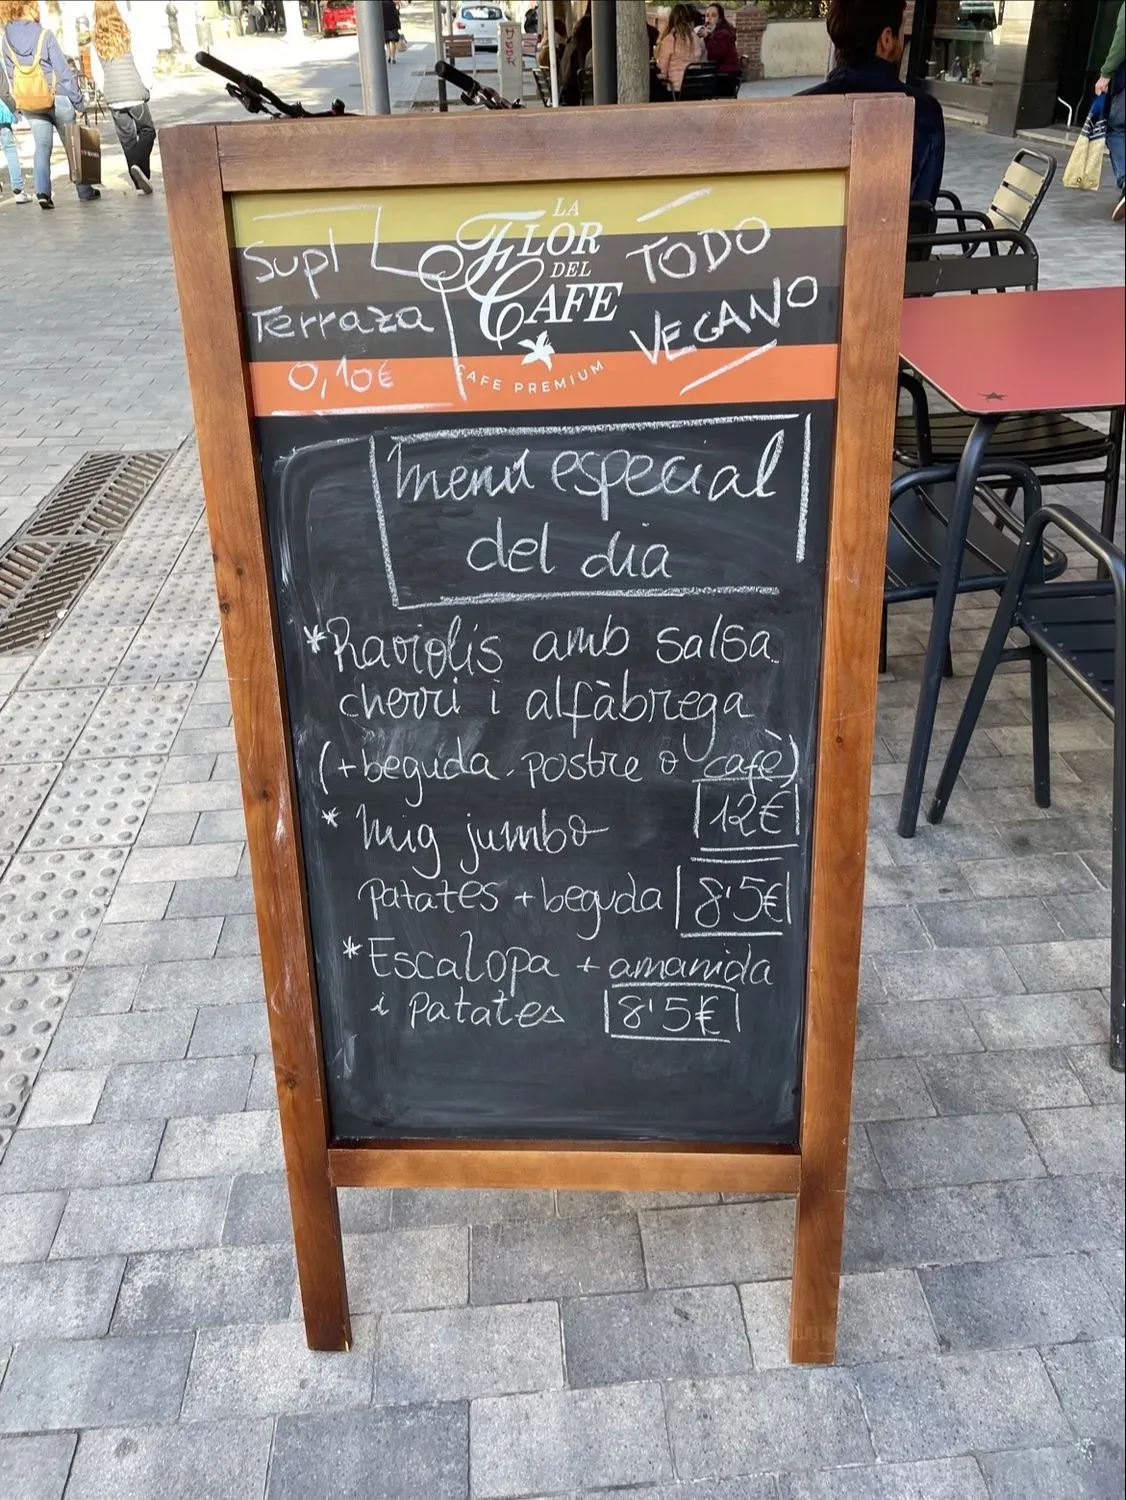 Supl
Terraza
0,10€
LA
FLOR
DEL
CAFE
CAFE PREMIUM
TODO
VEGANO
Menú especial
del dia
*Raviolis amb salsa
cherri i alfàbrega
(+beguda. postre o cafè)
12€
* Mig jumbo
patates + beguda 8'5€
*Escalopa + amanida
i patates 8'5€